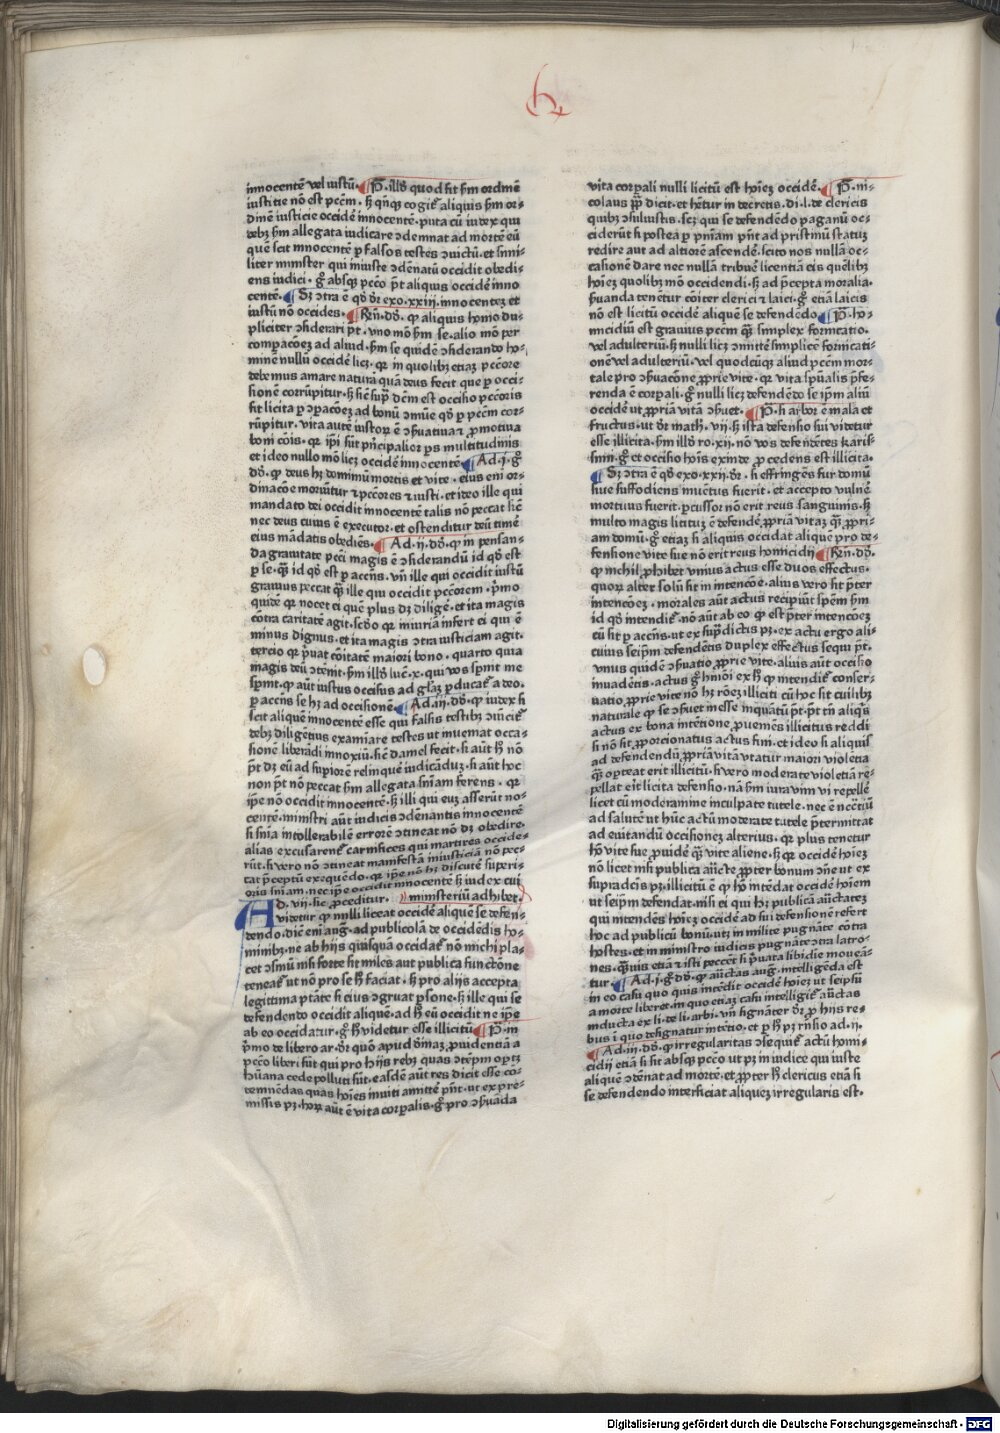 innocentē vel iustū. P̄. illd̄ quod fit s̄m ordinē
iusticie nō est pccm̄. s̄ qn̄q̨ cogit᷑ aliquis s̄m or-
dinē iusticie occidē innocentē. puta cū iudex qui
debꝫ s̄m allegata iudicare ɔdemnat ad mortē eū
quē scit innocentē ꝑ falsos testes ɔuictū. et simi-
liter minister qui iniuste ɔdēnatū occidit obedi-
ens iudici. gͦ absqꝫ pccō p̄t aliquis occidē inno
centē. Sꝫ ɔtra ē qd̄ dr̄ exo. xxiij. innocentez et
iustū nō occides. Rn̄. dd̄. ꝙ aliquis homo du-
pliciter ɔsiderari p̄t. vno mō s̄m se. alio mō per
compacōez ad aliud. s̄m se quidē ɔsiderando ho-
minē nullū occidē licꝫ. qꝛ in quolibꝫ etiaꝫ pccōre
debemus amare naturā quā deus fecit que ꝑ occi-
sionē corrūpitur. s̄ sic̄ sup̄ dc̄m est occisio pccōris
fit licita ꝑ ɔpacōez ad bonū ɔmūe qd̄ ꝑ pccm̄ cor-
rūpitur. vita autē iustoꝝ ē ɔẜuatiua ⁊ ꝓmotiua
boni cōis. qꝛ ip̄i sūt prīcipalior ꝑs multitudinis
et ideo nullo mō licꝫ occidē innocentē. Ad. j. gͦ
dd̄. ꝙ deus hꝫ dominiū mortis et vite. eius eni or-
dinacōe moriūtur ⁊ pccōres ⁊ iusti. et ideo ille qui
mandato dei occidit innocentē talis nō peccat sic̄
nec deus cuius ē executor. et ostenditur deū timē
eius mādatis obediēs. Ad. ij. dd̄. ꝙ in pensan-
da grauitate pcci magis ē ɔsiderandū id qd̄ est
ꝑ se. qꝫ id qd̄ est ꝑ accn̄s. vn̄ ille qui occidit iustū
grauius peccat qꝫ ille qui occidit pccōrem. p̄mo
quidē qꝛ nocet ei quē plus dꝫ diligē. et ita magis
cōtra caritatē agit. scd̄o qꝛ iniuriā infert ei qui ē
minus dignus. et ita magis ɔtra iusticiam agit.
tercio qꝛ p̄uat cōitatē maiori bono. quarto quia
magis deū ɔtēnit. s̄m illd̄ luc̄. x. qui vos sp̄nit me
sp̄nit. ꝙ aūt iustus occisus ad gl̄az ꝑducat᷑ a deo.
ꝑ accn̄s se hꝫ ad occisionē. Ad. iij. dd̄. ꝙ iudex si
scit aliquē innocentē esse qui falsis testibꝫ ɔuīcit᷑
debꝫ diligētius examīare testes ut inueniat occa-
sionē liberādi innoxiū. sic̄ daniel fecit. si aūt h̄ nō
p̄t dꝫ eū ad supiorē relinquē iudicāduꝫ. si aūt hoc
non p̄t nō peccat s̄m allegata sn̄iam ferens. qꝛ
ip̄e nō occidit innocentē. s̄ illi qui euꝫ asserūt no-
centē. ministri aūt iudicis ɔdēnantis innocentē
si sn̄ia intollerabilē errorē ɔtineat nō dꝫ obedire.
alias excusarent᷑ carnifices qui martires occide-
rūt. si vero nō ɔtineat manifestā iniusticiā nō pec-
cat p̄ceptū exequēdo. qꝛ ip̄e nō hꝫ discutē superi-
oris sn̄iam. nec ip̄e occidit innocentē s̄ iudex cui
Ad. vij. sic ꝓceditur. ministeriū adhibet.
videtur ꝙ nulli liceat occidē aliquē se defen-
dendo. dic̄ eni aug᷑. ad publicolā. de occidēdis ho-
minibꝫ ne ab hijs quisqua occidat᷑ nō michi pla-
cet ɔsiliū nisi forte sit miles aut publica functōne
teneat᷑ ut nō pro se h̄ faciat. s̄ pro alijs accepta
legittima ptāte si eius ɔgruat psone. s̄ ille qui se
defendendo occidit aliquē. ad h̄ eū occidit ne ip̄e
ab eo occidatur. gͦ h̄ videtur esse illicitū. P̄. in
p̄mo de libero ar. dr̄ quō apud diuinaꝫ ꝓuidentiā a
pccō liberi sūt qui pro hijs rebꝫ quas ɔtēpni optꝫ
hūana cede polluti sūt. easdē aūt res dicit esse cō-
temnēdas quas hoīes inuiti amittē pn̄t. ut ex pre-
missis pꝫ. hoꝝ aūt ē vita corꝑalis. gͦ pro ɔẜuāda
vita corꝑali nulli licitū est hoīeꝫ occidē. P̄. ni-
colaus pp̄ dicit. et hētur in decretis. di. l. de clericis
quibꝫ ɔsuluistis. scꝫ qui se defendēdo paganū oc-
ciderūt si postea ꝑ pn̄iam pn̄t ad pristinū statuꝫ
redire aut ad altiorē ascendē. scito nos nullā oc-
casionē dare nec nullā tribuē licentiā eis quēlibꝫ
hoīeꝫ quolibꝫ mō occidendi. s̄ ad p̄cepta moralia.
ẜuanda tenētur cōiter clerici ⁊ laici. gͦ etiā laicis
nō est licitū occidē aliquē se defendēdo. P̄. ho-
micidiū est grauius pccm̄ qꝫ simplex fornicatio.
vel adulteriū. s̄ nulli licꝫ ɔmittē simplicē fornicati-
onē vel adulteriū. vel quodcūqꝫ aliud pccm̄ mor-
tale pro ɔẜuacōne ꝓprie vite. qꝛ vita spūalis p̄fe-
renda ē corꝑali. gͦ nulli licꝫ defendēdo se ip̄m aliū
occidē ut ꝓpriā vitā ɔẜuet. P̄. si arbor ē mala et
fructus. ut dr̄ math. vij. s̄ ista defensio sui videtur
esse illicita. s̄m illd̄ ro. xij. nō vos defendētes karis-
simi. gͦ et occisio hoīs exinde ꝓcedens est illicita.
Sꝫ ɔtra ē qd̄ exo. xxij. dr̄. si effringēs fur domū
siue suffodiens inuētus fuerit. et accepto vulnē
mortuus fuerit. ꝑcussor nō erit reus sanguinis. s̄
multo magis licituꝫ ē defendē ꝓpriā vitaꝫ qꝫ ꝓpri-
am domū. gͦ etiaꝫ si aliquis occidat alique pro de-
fensione vite sue nō erit reus homicidij. Rn̄. dd̄.
ꝙ nichil ꝓhibet vnius actus esse duos effectus.
quoꝝ alter solū sit in intencōe. alius vero sit p̄ter
intencōeꝫ. morales aūt actus recipiūt spēm s̄m
id qd̄ intendit᷑. nō aūt ab eo ꝙ est p̄ter intencōeꝫ
cū sit ꝑ accn̄s. ut ex sup̄dictis pꝫ. ex actu ergo ali-
cuius seip̄m defendētis duplex effectus sequi p̄t.
vnus quidē ɔẜuatio ꝓprie vite. alius aūt occisio
inuadētis. actus gͦ hmōi ex h̄ ꝙ intendit᷑ conser-
uatio ꝓprie vite nō hꝫ rōeꝫ illiciti cū hoc sit cuilibꝫ
naturale ꝙ se ɔẜuet in esse inquātū p̄t. p̄t tn̄ aliqs̄
actus ex bona intētione ꝓueniēs illicitus reddi
si nō sit ꝓporcionatus actus fini. et ideo si aliquis
ad defendendū ꝓpriā vitā vtatur maiori violētia
qꝫ opteat erit illicitū. si vero moderate violētiā re-
pellat erit licita defensio. nā s̄m iura vim vi repellē
licet cū moderamine inculpate tutele. nec ē nccīū
ad salutē ut hūc actū moderate tutele p̄termittat
ad euitandū occisioneꝫ alterius. qꝛ plus tenetur
hō vite sue ꝓuidē qꝫ vite aliene. s̄ qꝛ occidē hoīeꝫ
nō licet nisi publica auctē ꝓpter bonum ɔīe ut ex
supradcīs pꝫ. illicitū ē ꝙ hō intēdat occidē hoīem
ut seip̄m defendat. nisi ei qui hꝫ publicā auctateꝫ
qui intendēs hoīeꝫ occidē ad sui defensionē refert
hoc ad publicū bonū. utꝫ in milite pugnāte cōtra
hostes. et in ministro iudicis pugnāte ɔtra latro-
nes. qꝫuis etiā ⁊ isti peccēt si p̄uata libidīe moueā-
tur. Ad. j. gͦ dd̄. ꝙ auctas aug᷑. intelligēda est
in eo casu quo quis intēdit occidē hoīeꝫ ut seipsū
a morte liberet. in quo etiaꝫ casu intelligit᷑ auctas
inducta ex li. de li. arbi. vn̄ signāter dr̄ ꝓ hijs re-
bus ī quo designatur intētio. et ꝑ h̄ pꝫ rn̄sio ad. ij.
Ad. iij. dd̄. ꝙ irregularitas ɔsequit᷑ actū homi-
cidij etiā si sit absqꝫ pccō ut pꝫ in iudice qui iuste
aliquē ɔdēnat ad mortē. et ꝓpter h̄ clericus etiā si
se defendendo interficiat aliqueꝫ irregularis est.
Digitalisierung gefördert durch die Deutsche Forschungsgemeinschaft - DFG